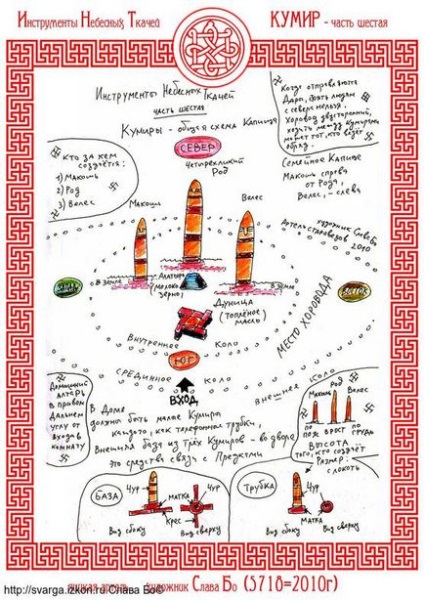 Инструменты Небесных Ткачей
КУМИР - часть шестая
Инструменты Небесных Ткачей
часть шестая
Кумиры - общая схема Капища
СЕВЕР
Четырехликий
Род
Кто за кем
создуется:
1) Макошь
2) Род
3) Велес
Когда отправляются
Дары, людям
с севера нельзя.
Хоровод двусторонний,
ходить между Кумирами
может тот, кто ведёт
обряд.
Семейное Капище
Макошь справа
от Рода,
Велес - слева
Макошь
Велес
художник Слава Бо
Артель староверов 2010
В Земле
Алатырь
(молоко
зерно)
В Земле
ВОСТОК
(топлёное
масло)
МЕСТО ХОРОВОДА
Внутреннее Коло
ЮГ
Срединное Коло
Внешнее Коло
ВХОД
Домашний
алтарь
в правом
Дальнем
углу от
входа в
комнату
В Доме
должны быть малые Кумиры
как телефонные трубки
Внешняя база из трёх Кумиров - во дворе
Это средства связи с Предками
Макошь Род Велес
по пояс в рост по грудь
ВЫСОТА -
того, кто создаёт
Размер:
с локоть
БАЗА
Чур
МАТКА
Чур
Крес
Вид сбоку
Вид сверху
Трубка
Чур
Чур
МАТКА
Вид сбоку
Вид сверху
художник Слава Бо (5718=2010г)
http://svarga.izkon.ru Слава Бо©